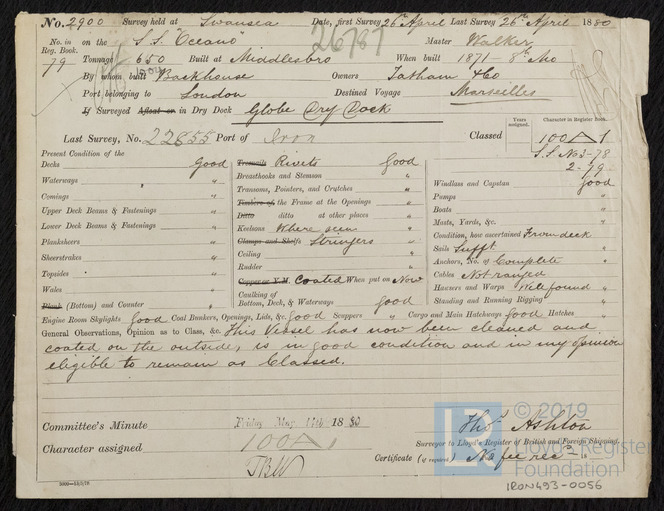 No. 2900 Survey held at Swansea Date, first Survey 26th April Last Survey 26th April 1880
No. in Reg. Book. 79 on the S.S. "Oceano" 26787 Master Walker
Tonnage 650 Built at Middlesbro When built 1871 8th Mo
By whom built Backhouse Owners Tatham & Co
Port belonging to London Destined Voyage Marseilles
If Surveyed Afloat or in Dry Dock Globe Dry Dock
Last Survey, No. 22855 Port of Iron Classed
Years assigned. Character in Register Book.
100A1
S.S. No 3-78
2-79
Present Condition of the
Decks Good
Waterways "
Comings "
Upper Deck Beams & Fastenings "
Lower Deck Beams & Fastenings "
Planksheers "
Sheerstrakes "
Topsides "
Wales "
Plank (Bottom) and Counter "
Treenails Rivets Good
Breasthooks and Stemson "
Transoms, Pointers, and Crutches "
Timbers of the Frame at the Openings "
Ditto ditto at other places "
Keelsons Where seen "
Clamps and Shelfs Stringers "
Ceiling "
Rudder "
Copper or Y.M. Coated When put on Now
Caulking of Bottom, Deck, & Waterways Good
Windlass and Capstan Good
Pumps "
Boats "
Masts, Yards, &c. "
Condition, how ascertained From deck
Sails Sufft
Anchors, No. of Complete "
Cables Not ranged
Hawsers and Warps Well found "
Standing and Running Rigging "
Engine Room Skylights Good Coal Bunkers, Openings, Lids, &c. Good Scuppers " Cargo and Main Hatchways Good Hatches "
General Observations, Opinion as to Class, &c. This Vessel has now been cleaned and
coated on the outside, is in good condition and in my opinion
eligible to remain as Classed.
Committee's Minute Friday May 14th 1880
Character assigned 100A1
Thos Ashton
Surveyor to Lloyd's Register of British and Foreign Shipping.
Certificate (if required) No fee recd 18
© 2019
Lloyd's Register
Foundation
LR
IRON493-0056